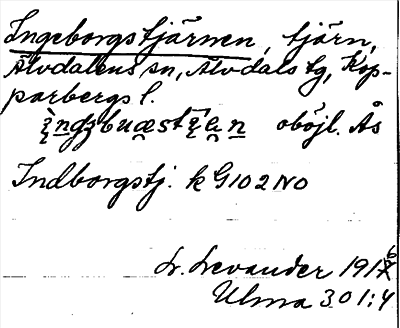 Ingeborgstjärnen, tjärn,
Älvdalens sn, Älvdals tg, Kop-
parbergs l.
oböjl. Ås
Indborgstj. k G102 NO
L. Levander 1916
Ulma 301:4